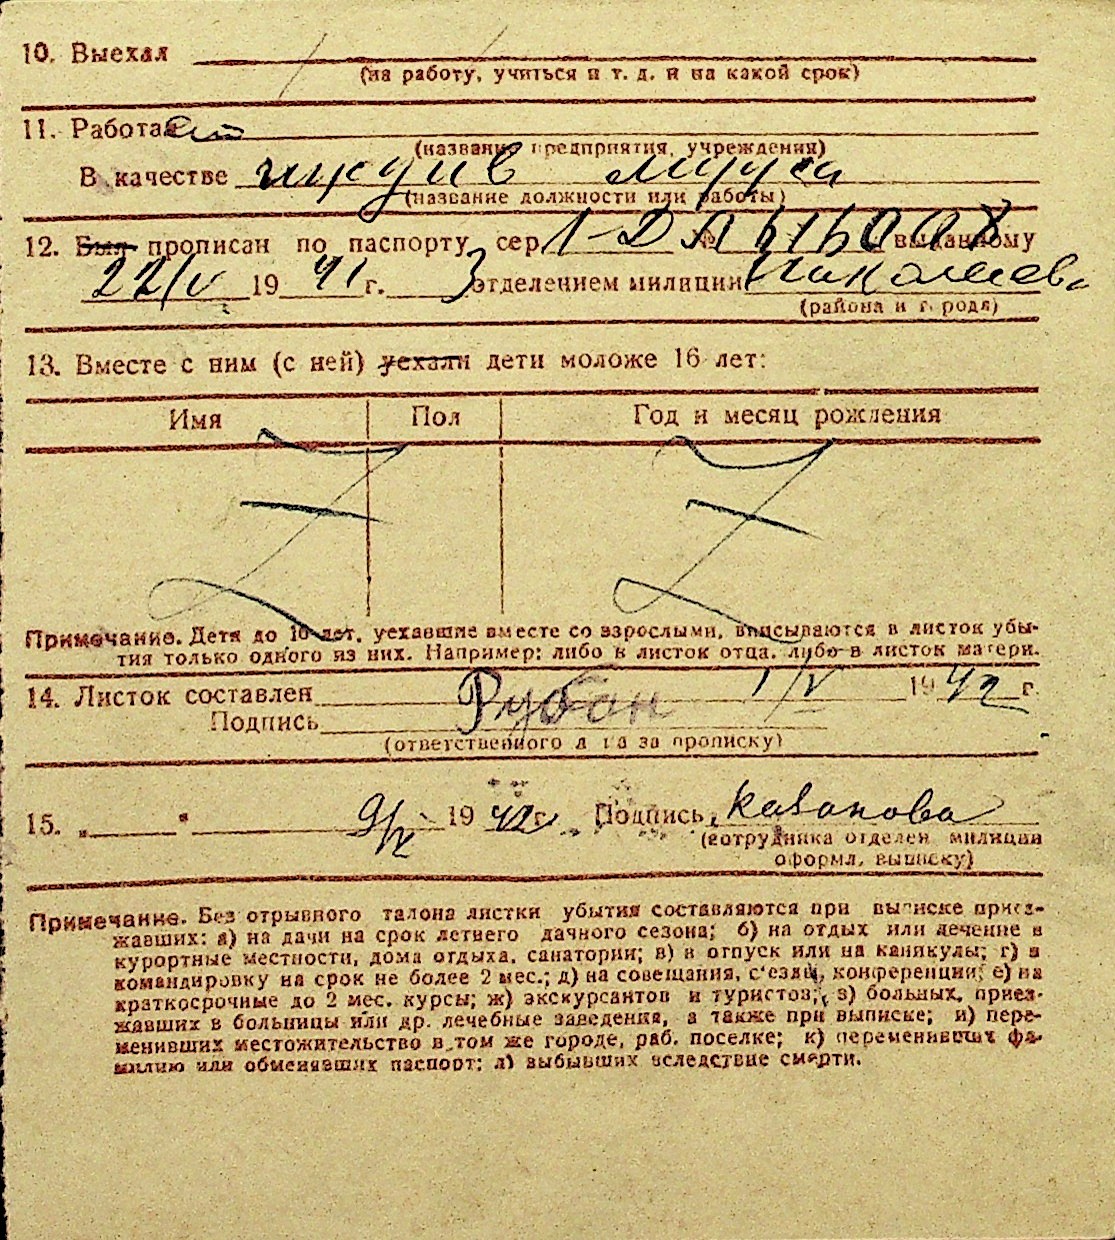 10. Выехал
(на работу, учиться и т. д. и на какой срок)
11. Работает
(название предприятия, учреждения)
В качестве иждив мужа
(название должности или работы)
12. Был прописан по паспорту сер. № выданному
22/V 1941 г. 3 отделением милиции Николаев
(района и города)
13. Вместе с ним (с ней) уехали дети моложе 16 лет:
Имя Пол Год и месяц рождения
Примечание. Дети до 16 лет, уехавшие вместе со взрослыми, вписываются в листок убы-
тия только одного из них. Например: либо в листок отца, либо в листок матери.
14. Листок составлен 1/V 1942 г.
Подпись Рубан
(ответственного лица за прописку)
15. „ " 9/X 1942 г. Подпись Казанова
(сотрудника отделен. милиции
оформл. выписку)
Примечание. Без отрывного талона листки убытия составляются при выписке приез-
жавших: а) на дачи на срок летнего дачного сезона; б) на отдых или лечение в
курортные местности, дома отдыха, санатории; в) в отпуск или на каникулы; г) в
командировку на срок не более 2 мес.; д) на совещания, с'езды, конференции; е) на
краткосрочные до 2 мес. курсы; ж) экскурсантов и туристов; з) больных, приез-
жавших в больницы или др. лечебные заведения, а также при выписке; и) пере-
менивших местожительство в том же городе, раб. поселке; к) переменивших фа-
милию или обменявших паспорт; л) выбывших вследствие смерти.